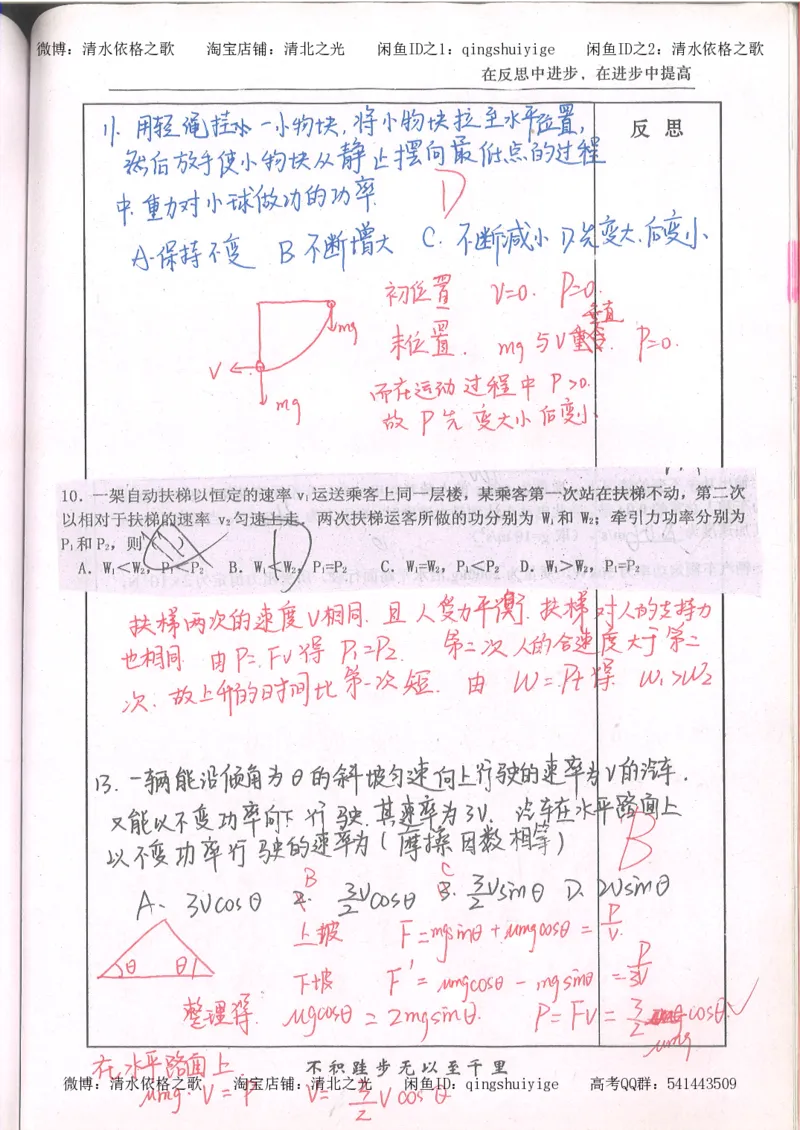 微博：清水依格之歌 淘宝店铺：清北之光 闲鱼ID之1：qingshuiyige 闲鱼ID之2：清水依格之歌
在反思中进步，在进步中提高
反 思
11. 用轻绳挂一小物块，将小物块拉至水平位置，
然后放手使小物块从静止摆向最低点的过程
中，重力对小球做功的功率
D
A.保持不变 B 不断增大 C. 不断减小 D.先变大.后变小
初位置 V=0. P=0.
垂直
末位置. mg与V P=0.
而在运动过程中 P>0.
故 P先变大小后变小
mg
V
mg
10．一架自动扶梯以恒定的速率 v₁运送乘客上同一层楼，某乘客第一次站在扶梯不动，第二次
以相对于扶梯的速率 v₂匀速上走．两次扶梯运客所做的功分别为 W₁和 W₂；牵引力功率分别为
P₁和 P₂，则
A．W₁＜W₂，P₁＜P₂ B．W₁＜W₂，P₁=P₂ C．W₁=W₂，P₁＜P₂ D．W₁＞W₂，P₁=P₂
扶梯两次的速度V相同. 且人受力平衡. 扶梯对人的支持力
也相同. 由P=Fv得 P₁=P₂. 第二次人的合速度大于第二
次. 故上升的时间比第一次短. 由 W=Pt得. W₁>W₂
13. 一辆能沿倾角为θ的斜坡匀速向上行驶的速率为V的汽车.
又能以不变功率向下行驶.其速率为3V. 汽车在水平路面上
以不变功率行驶的速率为（摩擦因数相等）
B
B C
A. 3Vcosθ 3/2 Vcosθ 3/2 Vsinθ D. 2Vsinθ
上坡 F=mgsinθ+μmgcosθ=P/V.
θ θ
下坡 F'=μmgcosθ-mgsinθ=P/3V
整理得. μgcosθ=2mgsinθ. P=FV=3/2 cosθ.
μmg
在水平路面上
μmg·V=P V=3/2 Vcosθ
不积跬步无以至千里
微博：清水依格之歌 淘宝店铺：清北之光 闲鱼ID：qingshuiyige 高考QQ群：541443509